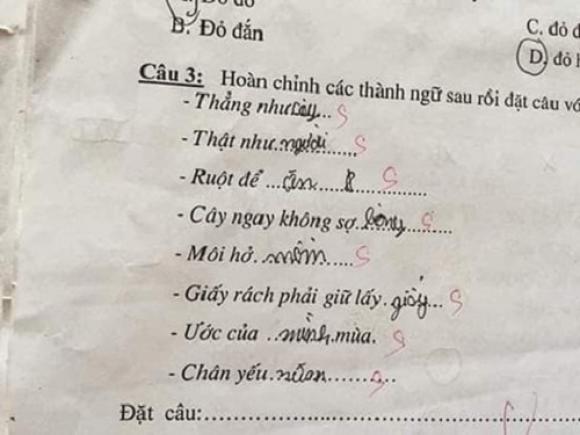 B. Đỏ đắn
C. đỏ đ
D. đỏ h
Câu 3: Hoàn chỉnh các thành ngữ sau rồi đặt câu vớ
- Thẳng như cây... S
- Thật như người...... S
- Ruột để ...ăn ... S
- Cây ngay không sợ. cong...... S
- Môi hở. mồm..... S
- Giấy rách phải giữ lấy. giấy... S
- Ước của ..mình.mùa. S
- Chân yếu. mềm......... S
Đặt câu: